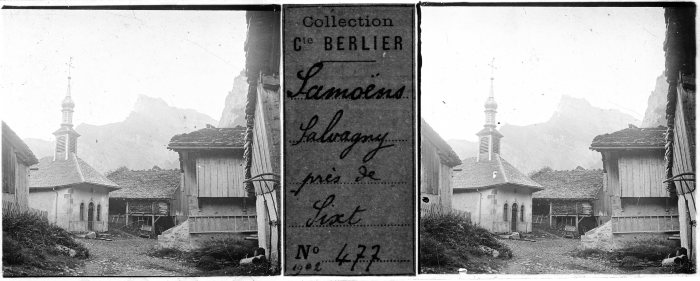 Collection
Cte BERLIER
Samoëns
Salvagny
près de
Sixt
No 477
1902